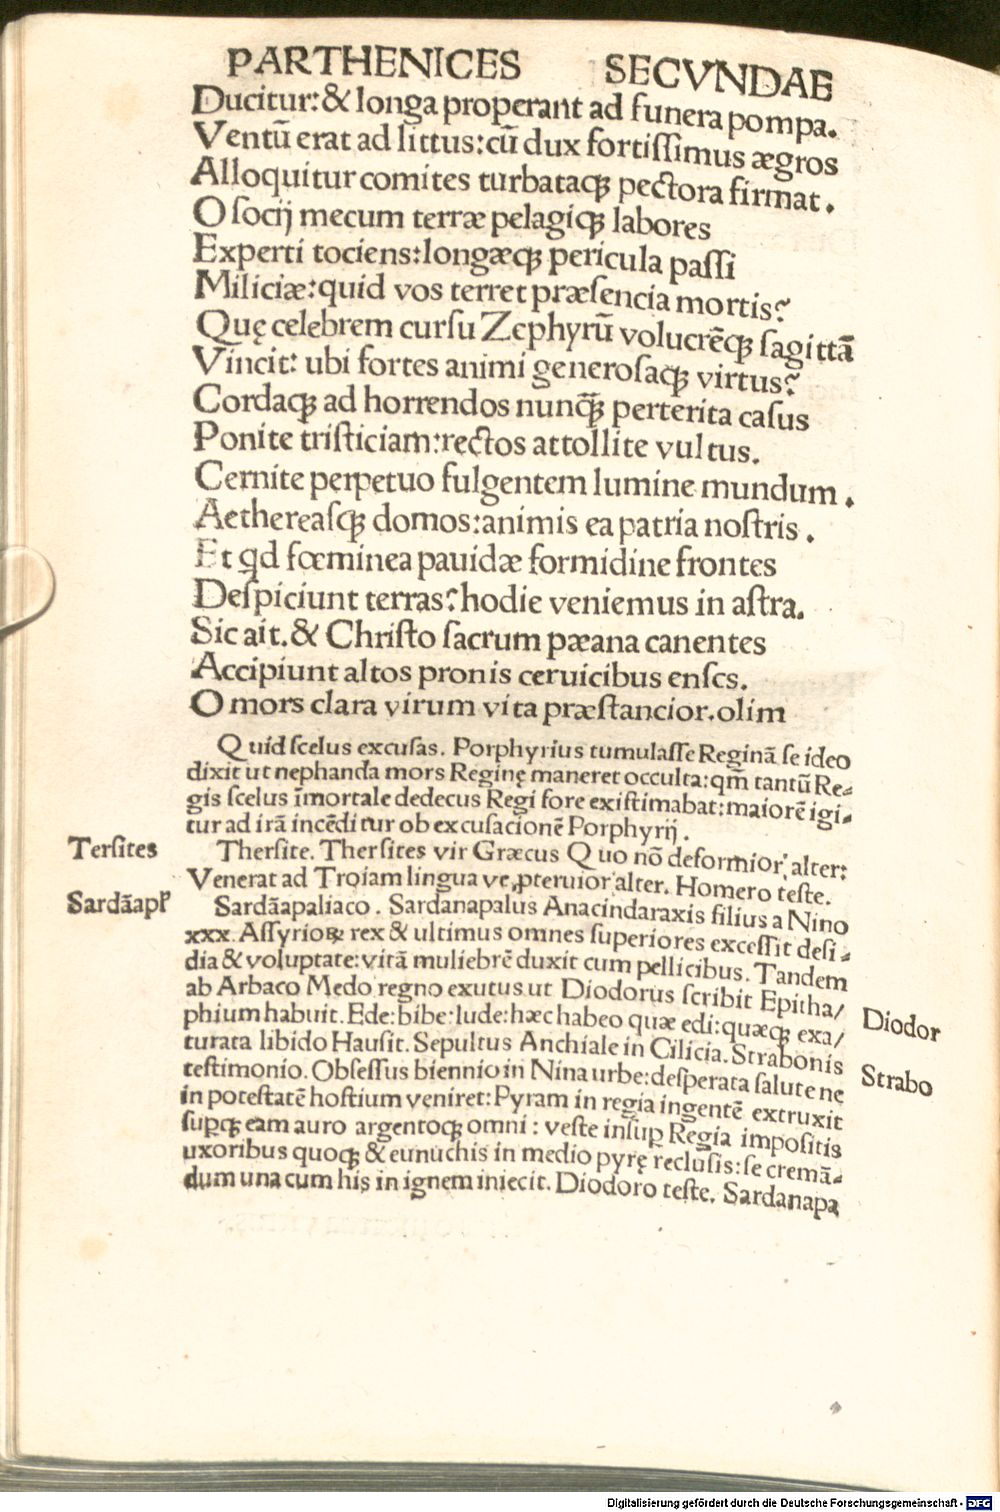 PARTHENICES SECVNDAE
Ducitur: & longa properant ad funera pompa.
Ventũ erat ad littus: cũ dux fortiſſimus ægros
Alloquitur comites turbataqꝫ pectora firmat.
O ſocij mecum terræ pelagiqꝫ labores
Experti tociens: longæqꝫ pericula paſſi
Miliciæ: quid vos terret præſencia mortis?
Quę celebrem curſu Zephyrũ volucrẽqꝫ ſagittã
Vincit: ubi fortes animi generoſaqꝫ virtus?
Cordaqꝫ ad horrendos nunq̃ꝫ perterita caſus
Ponite triſticiam: rectos attollite vultus.
Cernite perpetuo fulgentem lumine mundum.
Aethereaſqꝫ domos: animis ea patria noſtris.
Et qd fœminea pauidæ formidine frontes
Deſpiciunt terras? hodie veniemus in aſtra.
Sic ait. & Chriſto ſacrum pæana canentes
Accipiunt altos pronis ceruicibus enſes.
O mors clara virum vita præſtancior. olim
Quid ſcelus excuſas. Porphyrius tumulaſſe Reginã ſe ideo
dixit ut nephanda mors Reginę maneret occulta: qm̃ tantũ Re-
gis ſcelus ĩmortale dedecus Regi fore exiſtimabat: maiorẽ igi-
tur ad irã incẽditur ob excuſacionẽ Porphyrij.
Terſites
Therſite. Therſites vir Græcus Quo nõ deformior alter:
Venerat ad Troiam lingua ve ꝓteruior alter. Homero teſte.
Sardãapl̃
Sardãapaliaco. Sardanapalus Anacindaraxis filius a Nino
xxx. Aſſyrioꝝ rex & ultimus omnes ſuperiores exceſſit deſi-
dia & voluptate: vitã muliebrẽ duxit cum pellicibus. Tandem
ab Arbaco Medo regno exutus ut Diodorus ſcribit Epitha/
Diodor
phium habuit. Ede: bibe: lude: hæc habeo quæ edi: quæqꝫ exa/
turata libido Hauſit. Sepultus Anchiale in Cilicia. Strabonis
Strabo
teſtimonio. Obſeſſus biennio in Nina urbe: deſperata ſalute ne
in poteſtatẽ hoſtium veniret: Pyram in regia ingentẽ extruxit
ſuꝑqꝫ eam auro argentoqꝫ omni: veſte inſuꝑ Regia impoſitis
uxoribus quoqꝫ & eunuchis in medio pyrę recluſis: ſe cremã-
dum una cum his in ignem iniecit. Diodoro teſte. Sardanapa
Digitalisierung gefördert durch die Deutsche Forschungsgemeinschaft - DFG